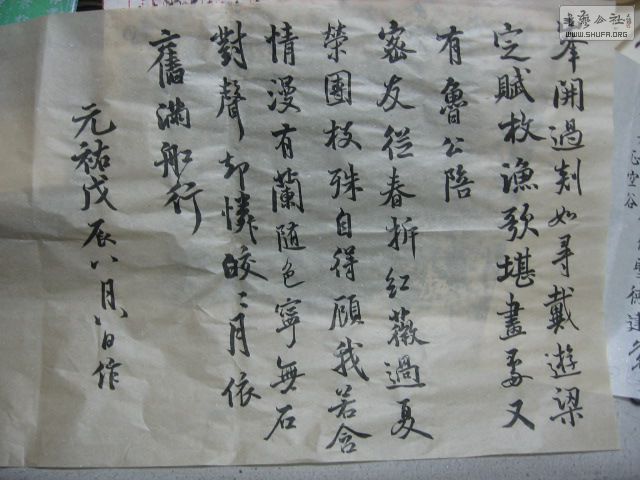 峯開過剡如尋戴遊梁
定賦枚漁歌堪畫處又
有魯公陪
密友從春拆紅薇過夏
榮團枝殊自得顧我若含
情漫有蘭隨色寧無石
對聲却憐皎〻月依
舊滿船行
元祐戊辰八月八日作
空谷
公社
WWW.SHUFA.ORG